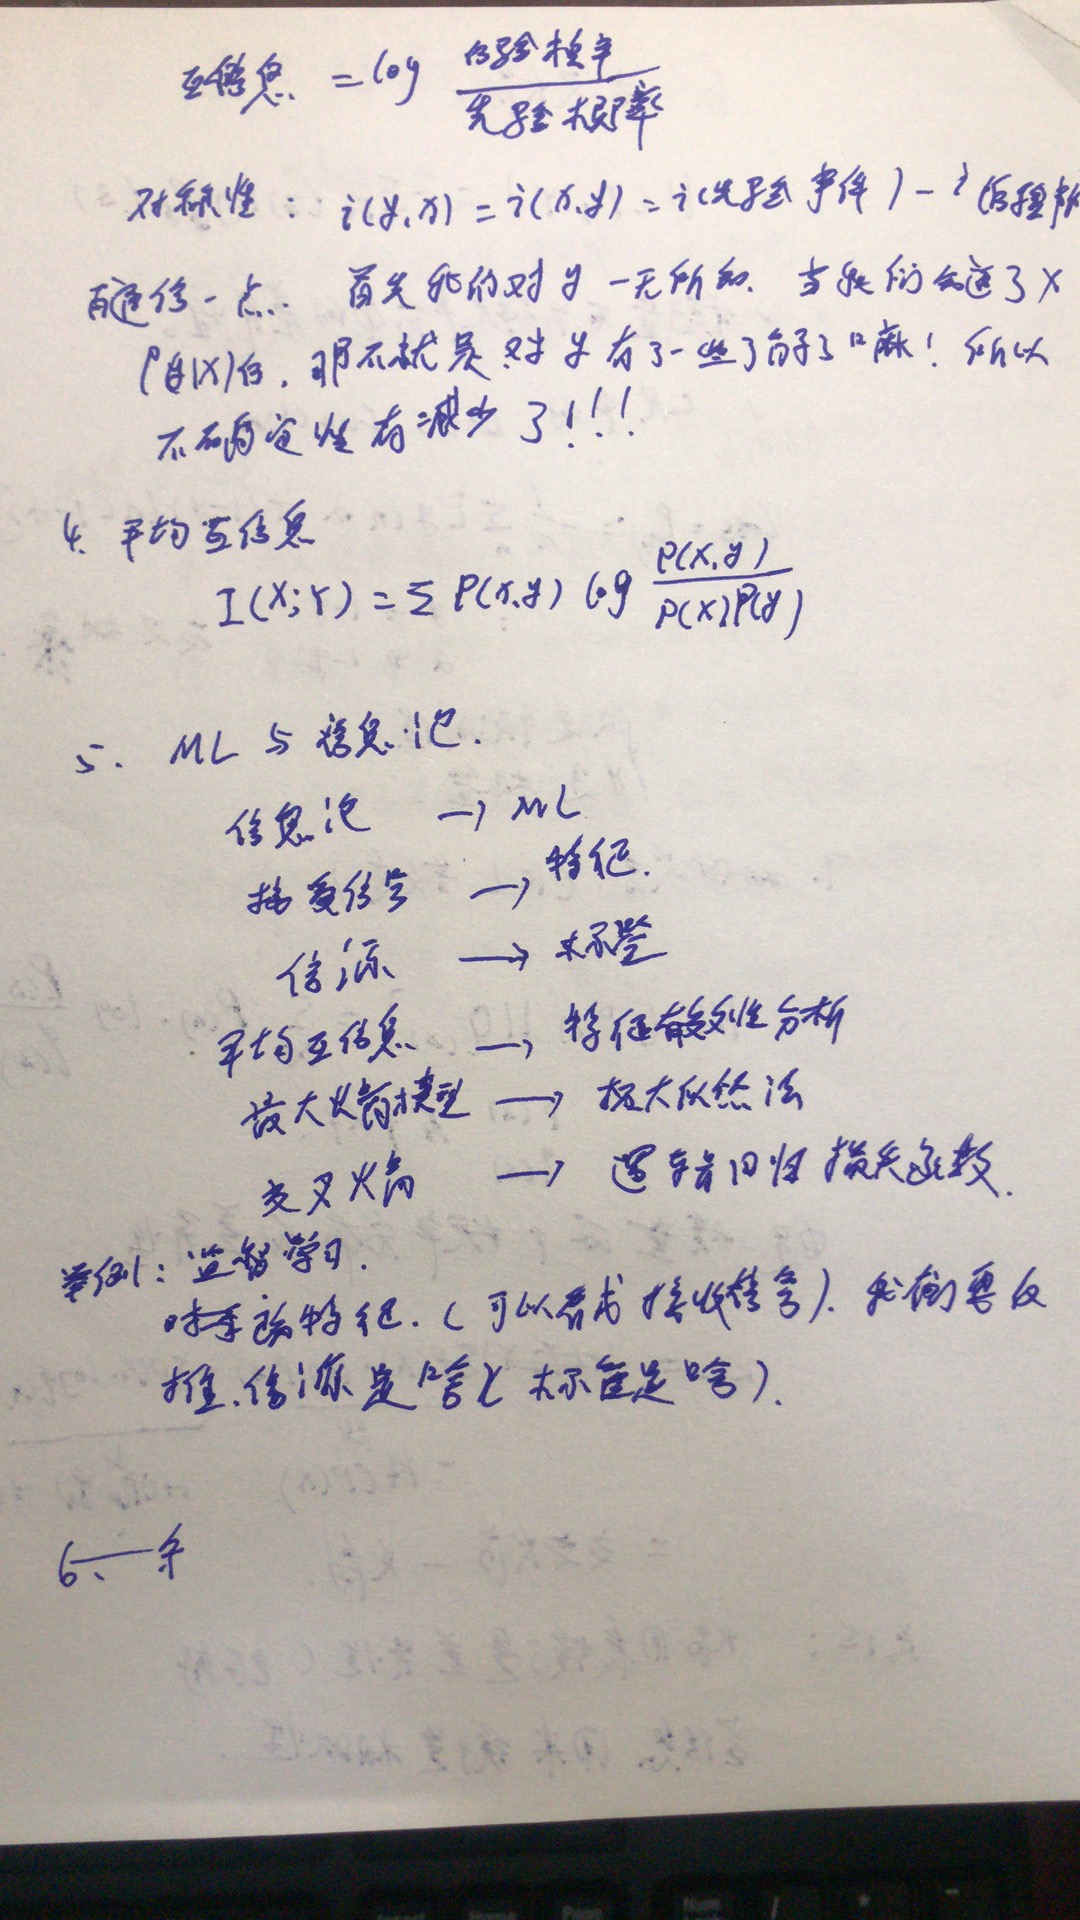 互信息 = log 后验概率 / 先验概率
对称性: i(y,x) = i(x,y) = i(先验事件) - i(后验事件
再通俗一点.. 首先我们对y一无所知. 当我们知道了X
P(y|X)后, 那不就是对y有了一些了解了嘛! 所以
不确定性有减少了!!!
4. 平均互信息
I(X;Y) = Σ P(x,y) log P(x,y) / P(x)P(y)
5. ML与信息论.
信息论 → ML
接受信号 → 特征.
信源 → 标签
平均互信息 → 特征有效性分析
最大熵模型 → 极大似然法
交叉熵 → 逻辑回归损失函数.
举例: 监督学习.
特征.(可以看成接收信号). 我们要反
推.信源是啥(标签是啥).
6、